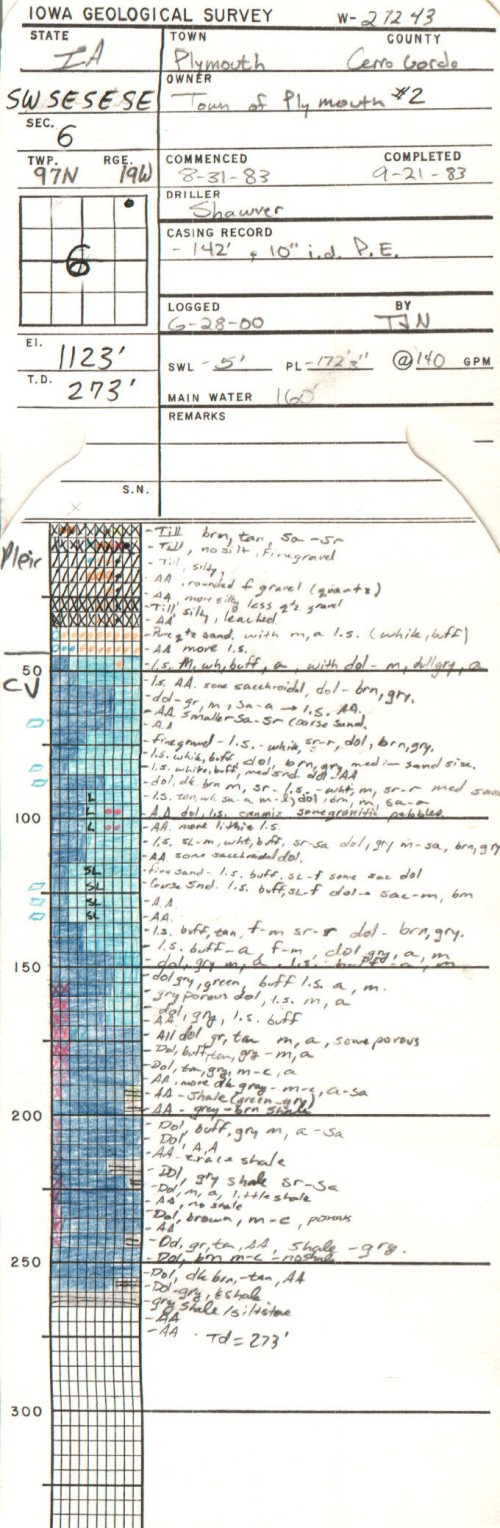 IOWA GEOLOGICAL SURVEY W-27243
STATE TOWN COUNTY
IA Plymouth Cerro Gordo
OWNER
SW SE SE SE Town of Plymouth #2
SEC.
6
TWP. RGE. COMMENCED COMPLETED
97N 19W 8-31-83 9-21-83
DRILLER
Shawver
CASING RECORD
6 - 142', 10" i.d. P.E.
LOGGED BY
6-28-00 TJN
El. 1123'
SWL -5' PL -172'3" @140 GPM
T.D. 273'
MAIN WATER 160'
REMARKS
S.N.
Pleir
- Till brn, tan, sa-sr
- Till, no silt, fine gravel
- Till, silty,
- AA, rounded f gravel (quartz)
- AA more silty less qtz gravel
- Till silty, leached.
- AA
- Pure qtz sand. with m, a l.s. (white, buff)
- AA more l.s.
- l.s. M, wh, buff, a, with dol - m, dull gry, a
50
CV
- l.s. AA. some sacchroidal, dol - brn, gry.
- dol-gr, m, sa-a → l.s. AA.
- AA smaller sa-sr coarse sand.
- A.A
- fine gravel - l.s. - white, sr-r, dol, brn, gry.
- l.s. white, buff dol, brn, gry, medium sand size.
- l.s. white, buff, med snd. dol - AA
- dol, dk. brn m, sr. l.s. - wht, m, sr-r med
L - l.s. tan, wh. sa-a m-s) dol, brn, m, sa-a
L - A.A dol, l.s. pebbles.
100
L - AA. more lithic l.s.
- l.s. sl-m, wht, buff, sr-sa dol, gry m-sa, brn, gry
- AA some sacchroidal dol.
SL - fine sand - l.s. buff, sl-f some sac dol
SL - Coarse Snd. l.s. buff, sl-f dol → sac-m, brn
SL - A.A.
SL - AA.
- l.s. buff, tan, f-m sr-r dol - brn, gry.
- l.s. buff-a, f-m, dol gry, a, m
- dol, gry m, a - l.s. - buff - a, m
150
- dol gry, green, buff l.s. a, m.
- gry porous dol, l.s. m, a
- dol, gry, l.s. buff
- AA
- All dol gr, tan m, a, some porous
- Dol, buff, tan, gry - m, a
- Dol, tan, gry, m-c, a
- AA. more dk gray - m-c, a-sa
- AA - shale (green-gry)
- AA - grey-brn shale
200
- Dol, buff, gry m, a-sa
- Dol, A.A
- AA trace shale
- Dol, gry shale sr-sa
- Dol, m, a, little shale
- AA, no shale
- Dol, brown, m-c, porous
- AA
- Dol, gr, tan, AA, shale - gry.
- Dol, brn m-c - no shale
250
- Dol, dk brn, tan, AA
- Dol-gry, shale
- gry shale/siltstone
- AA
- AA . Td = 273'
300